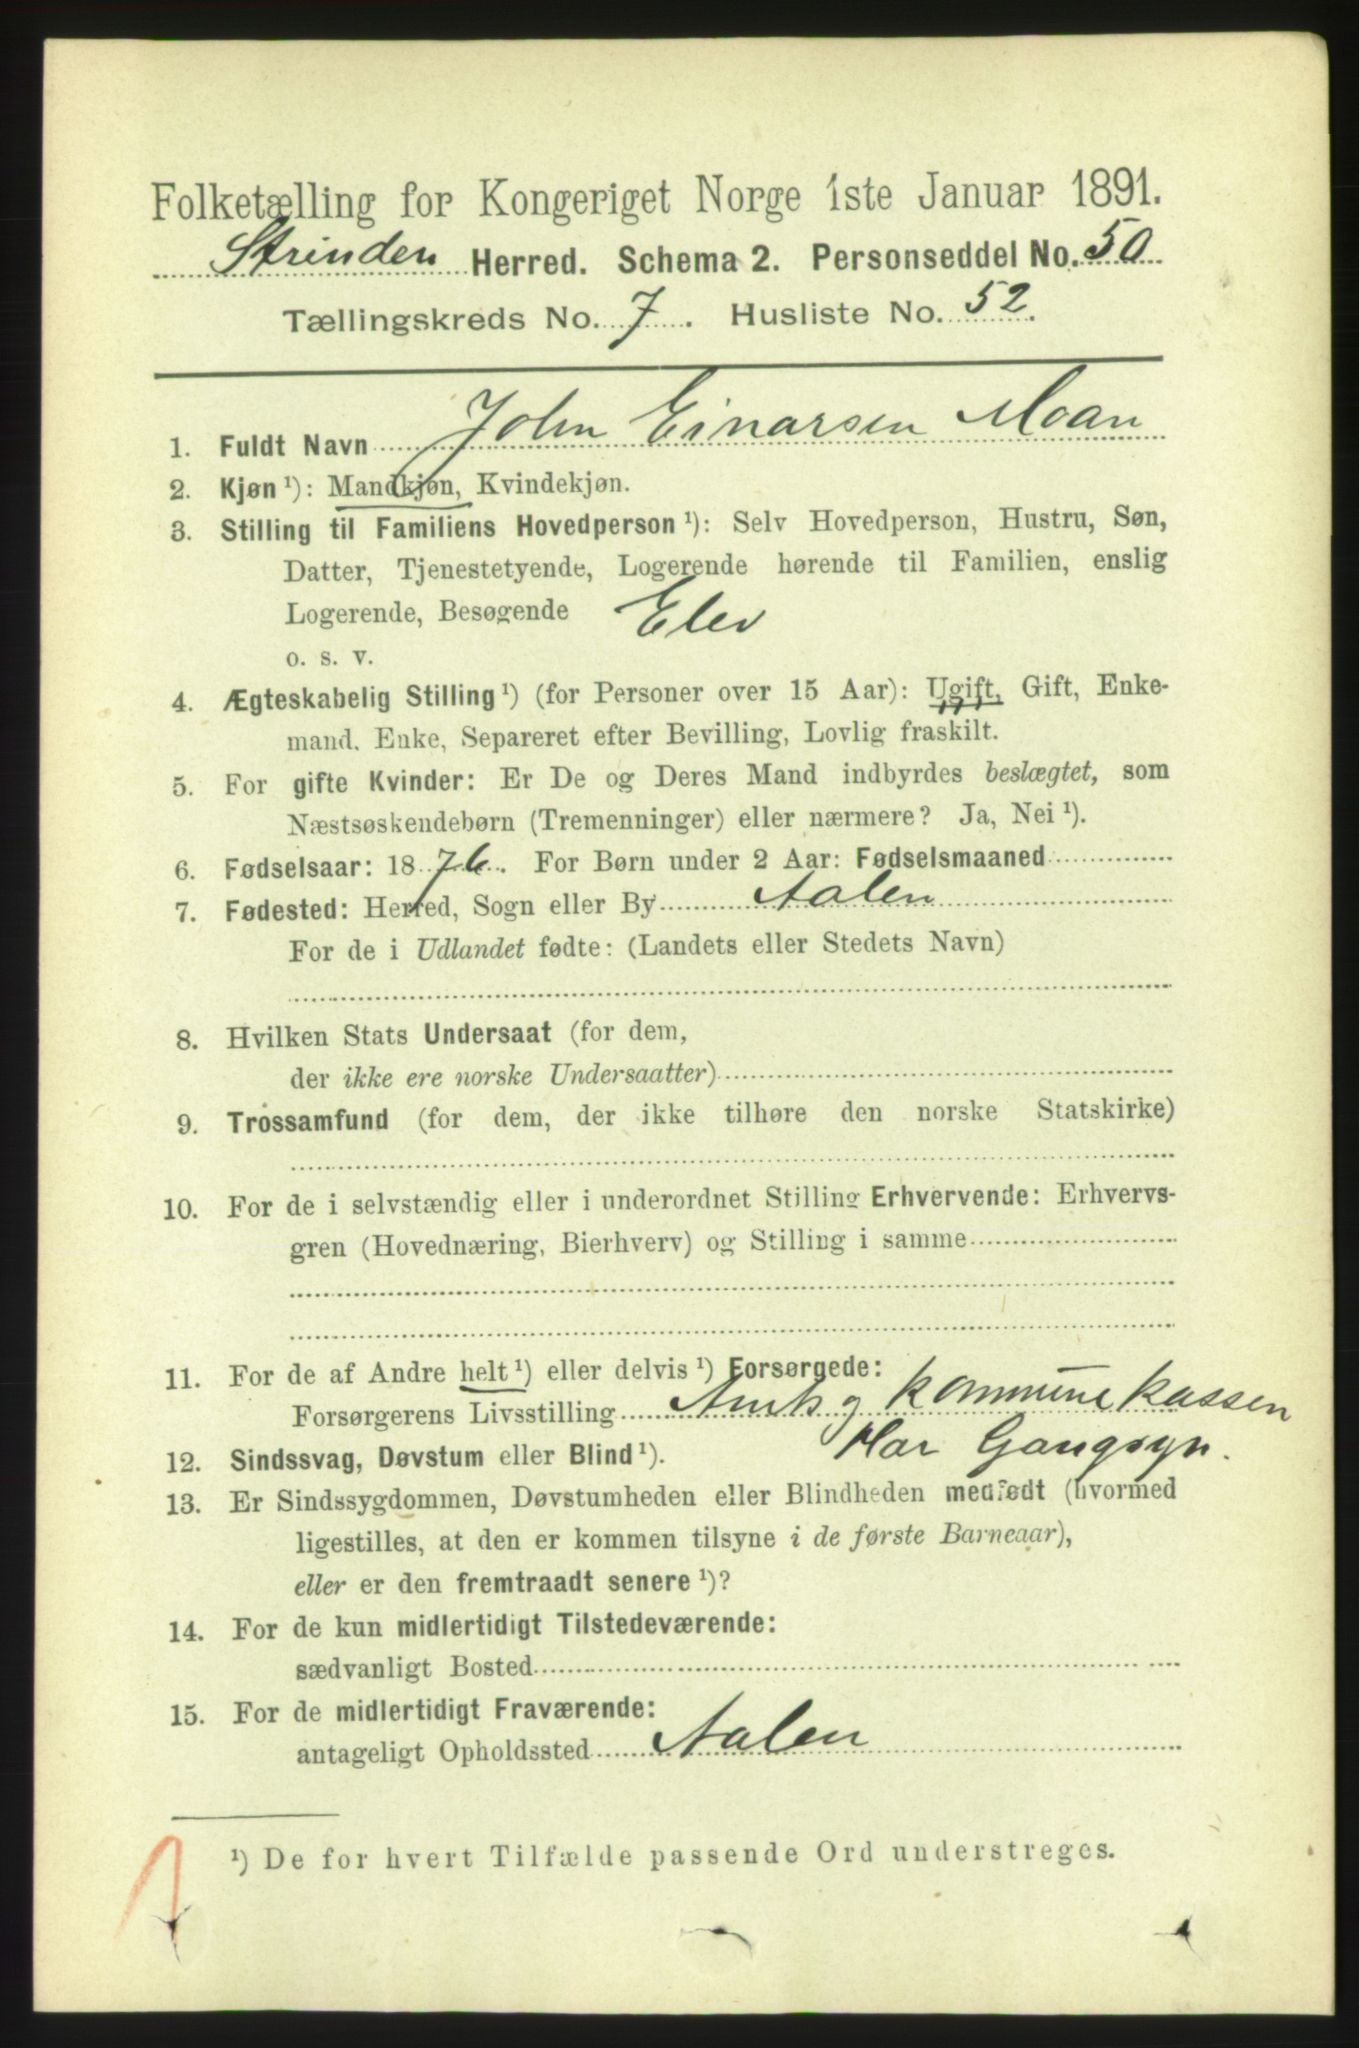 Folketælling for Kongeriget Norge 1ste Januar 1891.
Strinden Herred. Schema 2. Personseddel No. 50
Tællingskreds No. 7. Husliste No. 52.
1. Fuldt Navn John Einarsen Moan
2. Kjøn¹): Mandkjøn, Kvindekjøn.
3. Stilling til Familiens Hovedperson¹): Selv Hovedperson, Hustru, Søn,
Datter, Tjenestetyende, Logerende hørende til Familien, enslig
Logerende, Besøgende Elev
o. s. v.
4. Ægteskabelig Stilling¹) (for Personer over 15 Aar): Ugift, Gift, Enke-
mand, Enke, Separeret efter Bevilling, Lovlig fraskilt.
5. For gifte Kvinder: Er De og Deres Mand indbyrdes beslægtet, som
Næstsøskendebørn (Tremenninger) eller nærmere? Ja, Nei¹).
6. Fødselsaar: 1876. For Børn under 2 Aar: Fødselsmaaned
7. Fødested: Herred, Sogn eller By Aalen
For de i Udlandet fødte: (Landets eller Stedets Navn)
8. Hvilken Stats Undersaat (for dem,
der ikke ere norske Undersaatter)
9. Trossamfund (for dem, der ikke tilhøre den norske Statskirke)
10. For de i selvstændig eller i underordnet Stilling Erhvervende: Erhvervs-
gren (Hovednæring, Bierhverv) og Stilling i samme
11. For de af Andre helt¹) eller delvis¹) Forsørgede:
Forsørgerens Livsstilling Amts og Kommunekassen
12. Sindssvag, Døvstum eller Blind¹). Har Gangsyn.
13. Er Sindssygdommen, Døvstumheden eller Blindheden medfødt (hvormed
ligestilles, at den er kommen tilsyne i de første Barneaar),
eller er den fremtraadt senere¹)?
14. For de kun midlertidigt Tilstedeværende:
sædvanligt Bosted
15. For de midlertidigt Fraværende:
antageligt Opholdssted Aalen
¹) De for hvert Tilfælde passende Ord understreges.